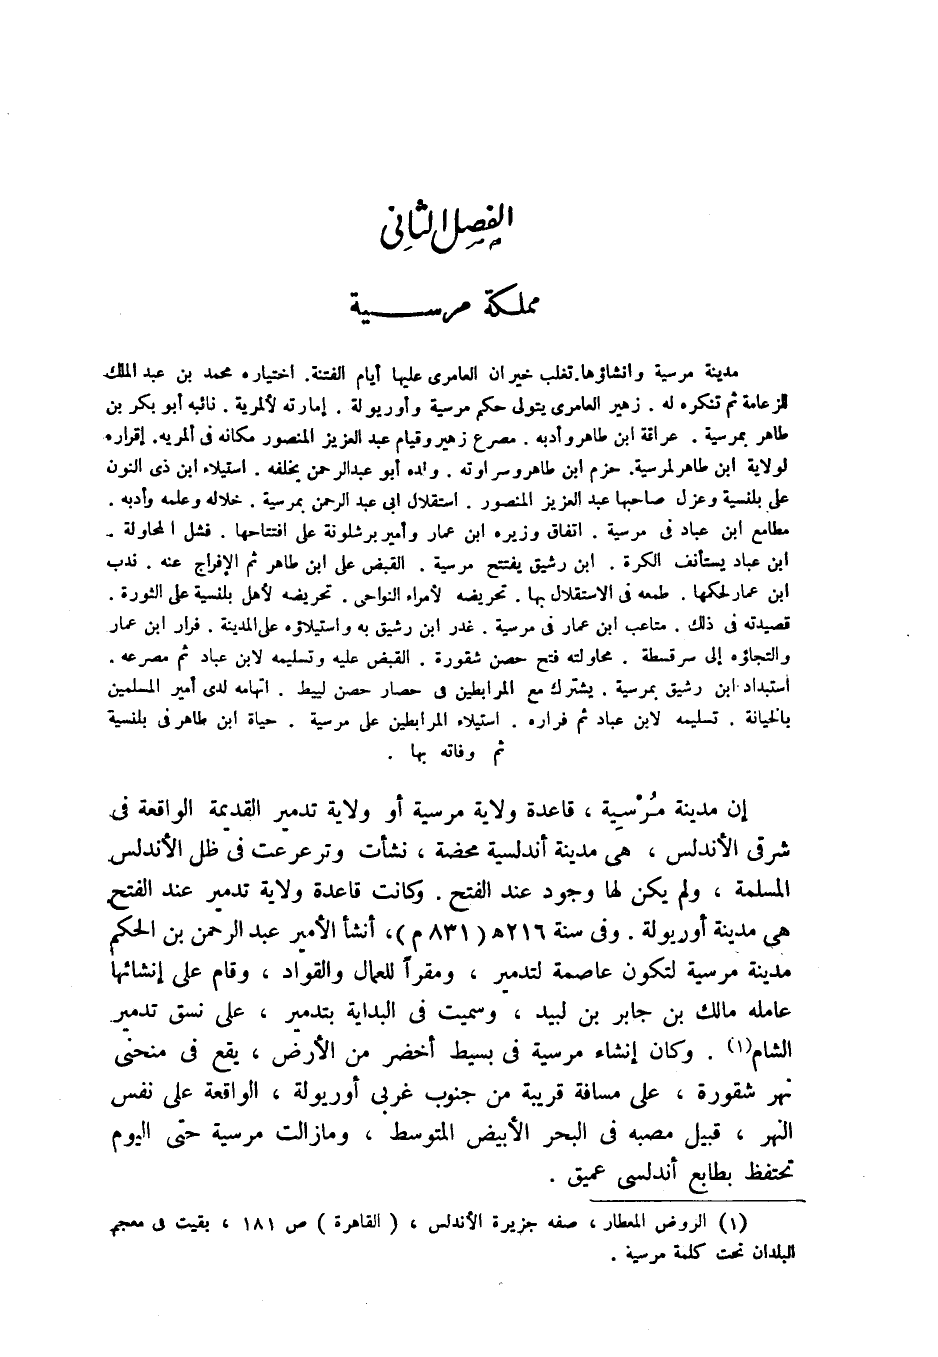 الفصل الثانى
مملكة مرسية
مدينة مرسية وإنشاؤها. تغلب خيران العامرى عليها أيام الفتنة. اختياره محمد بن عبد الملك
للزعامة ثم تنكره له . زهير العامرى يتولى حكم مرسية وأوريولة . إمارته لألمرية . نائبه أبو بكر بن
طاهر بمرسية . عراقة ابن طاهر وأدبه . مصرع زهير وقيام عبد العزيز المنصور مكانه فى ألمريه. إقراره
لولاية ابن طاهر لمرسية. حزم ابن طاهر وسراوته . ولده أبو عبد الرحمن يخلفه . استيلاء ابن ذى النون
على بلنسية وعزل صاحبها عبد العزيز المنصور . استقلال ابى عبد الرحمن بمرسية . خلاله وعلمه وأدبه .
مطامع ابن عباد فى مرسية . اتفاق وزيره ابن عمار وأمير برشلونة على افتتاحها . فشل المحاولة .
ابن عباد يستأنف الكرة . ابن رشيق يفتتح مرسية . القبض على ابن طاهر ثم الإفراج عنه . ندب
ابن عمار لحكمها . طمعه فى الاستقلال بها . تحريضه لأمراء النواحى . تحريضه لأهل بلنسية على الثورة .
قصيدته فى ذلك . متاعب ابن عمار فى مرسية . غدر ابن رشيق به واستيلاؤه على المدينة . فرار ابن عمار
والتجاؤه إلى سرقسطة . محاولته فتح حصن شقورة . القبض عليه وتسليمه لابن عباد ثم مصرعه .
استبداد ابن رشيق بمرسية . يشترك مع المرابطين فى حصار حصن لييط . اتهامه لدى أمير المسلمين
بالخيانة . تسليمه لابن عباد ثم فراره . استيلاء المرابطين على مرسية . حياة ابن طاهر فى بلنسية
ثم وفاته بها .
إن مدينة مُرْسِية ، قاعدة ولاية مرسية أو ولاية تدمير القديمة الواقعة فى
شرقى الأندلس ، هى مدينة أندلسية محضة ، نشأت وترعرعت فى ظل الأندلس
المسلمة ، ولم يكن لها وجود عند الفتح . وكانت قاعدة ولاية تدمير عند الفتح
هى مدينة أوريولة . وفى سنة ٢١٦ه (٨٣١ م)، أنشأ الأمير عبد الرحمن بن الحكم
مدينة مرسية لتكون عاصمة لتدمير ، ومقراً للعمال والقواد ، وقام على إنشائها
عامله مالك بن جابر بن لبيد ، وسميت فى البداية بتدمير ، على نسق تدمير
الشام(١) . وكان إنشاء مرسية فى بسيط أخضر من الأرض ، يقع فى منحنى
نهر شقورة ، على مسافة قريبة من جنوب غربى أوريولة ، الواقعة على نفس
النهر ، قبيل مصبه فى البحر الأبيض المتوسط ، ومازالت مرسية حتى اليوم
تحتفظ بطابع أندلسى عميق .
(١) الروض المعطار ، صفه جزيرة الأندلس ، ( القاهرة ) ص ١٨١ ، بقيت فى معجم
البلدان تحت كلمة مرسية .